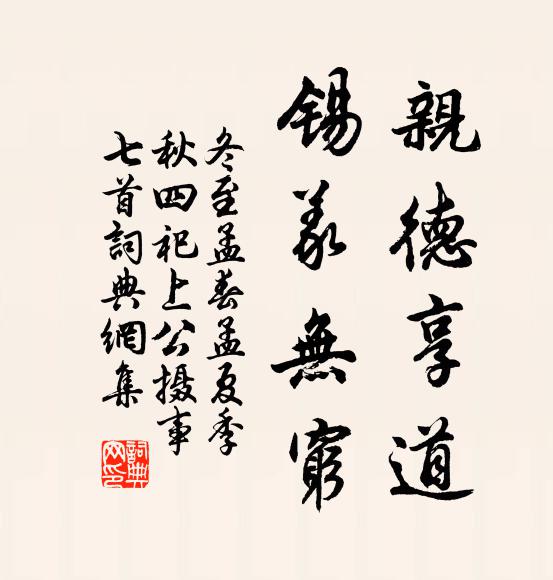 親德享道
錫羨無窮
冬至孟春孟夏季
秋四祀上公摄事
七首詞典網集
詞典
网印